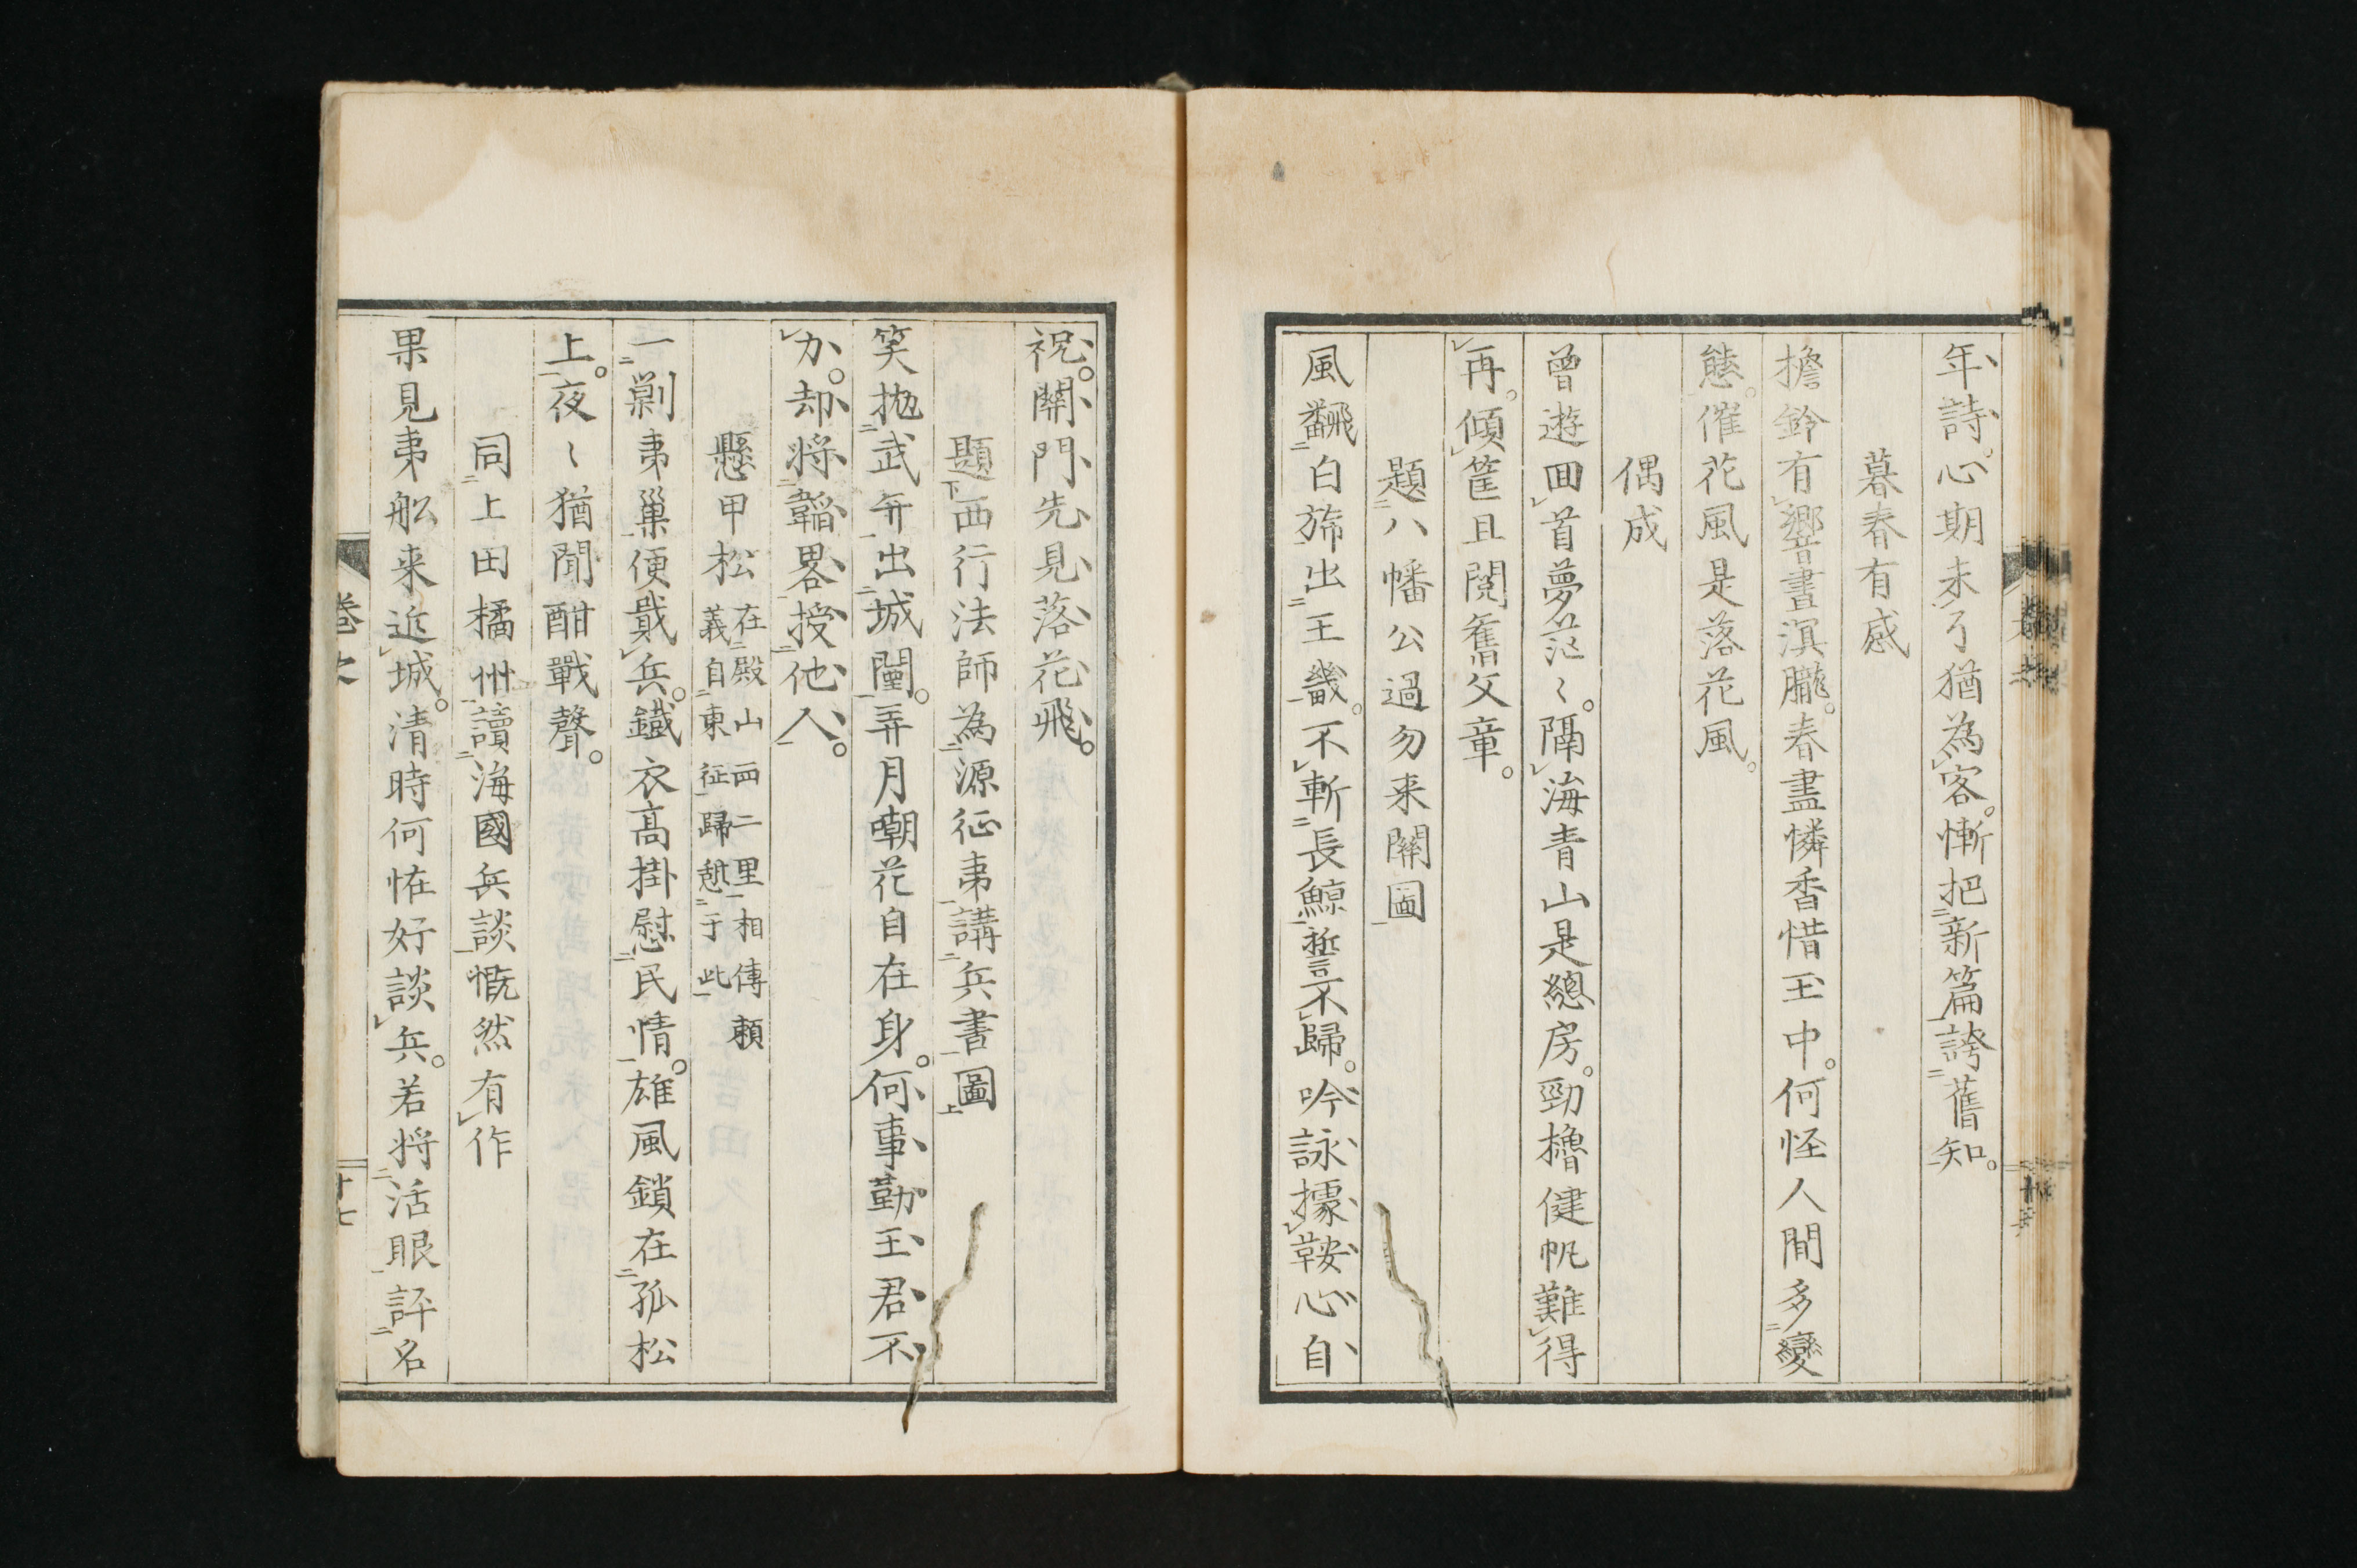 年詩。心期未了猶為客。慚把新篇誇舊知。
暮春有感
擔鈴有響晝溟朧。春盡憐香惜玉中。何怪人間多變
態。催花風是落花風。
偶成
曾遊回首夢茫〻。隔海青山是總房。勁櫓健帆難得
再。傾筐且閱舊文章。
題八幡公過勿来關圖
風飜白旆出王畿。不斬長鯨誓不歸。吟詠據鞍心自
祝。關門先見落花飛。
題西行法師為源征夷講兵書圖
笑抛武弁出城闉。弄月嘲花自在身。何事勤王君不
力。却将韜畧授他人。
懸甲松 在殿山西二里相傳頼
義自東征歸憩于此
一剿夷巢便戢兵。鐵衣高掛慰民情。雄風鎖在孤松
上。夜〻猶聞酣戰聲。
同上田橘州讀海國兵談慨然有作
果見夷舩来近城。清時何恠好談兵。若将活眼評名
卷
十七